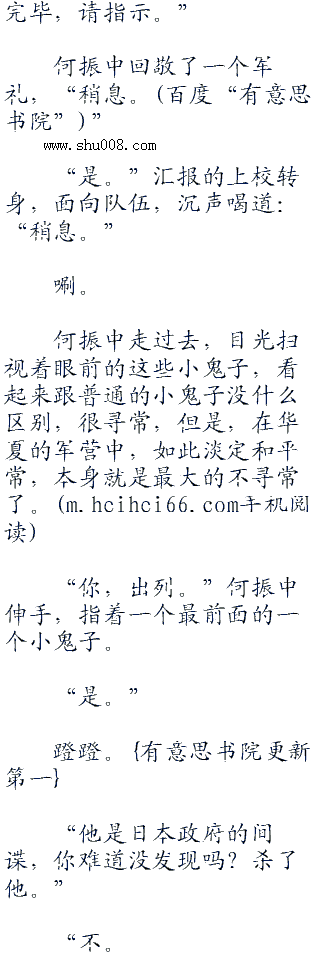 完毕，请指示。”
何振中回敬了一个军
礼，“稍息。(百度“有意思
书院”)”
www.shu008.com
“是。”汇报的上校转
身，面向队伍，沉声喝道：
“稍息。”
唰。
何振中走过去，目光扫
视着眼前的这些小鬼子，看
起来跟普通的小鬼子没什么
区别，很寻常，但是，在华
夏的军营中，如此淡定和平
常，本身就是最大的不寻常
了。(m.hcihci66.com手机阅
读)
“你，出列。”何振中
伸手，指着一个最前面的一
个小鬼子。
“是。”
蹬蹬。{有意思书院更新
第一}
“他是日本政府的间
谍，你难道没发现吗？杀了
他。”
“不。